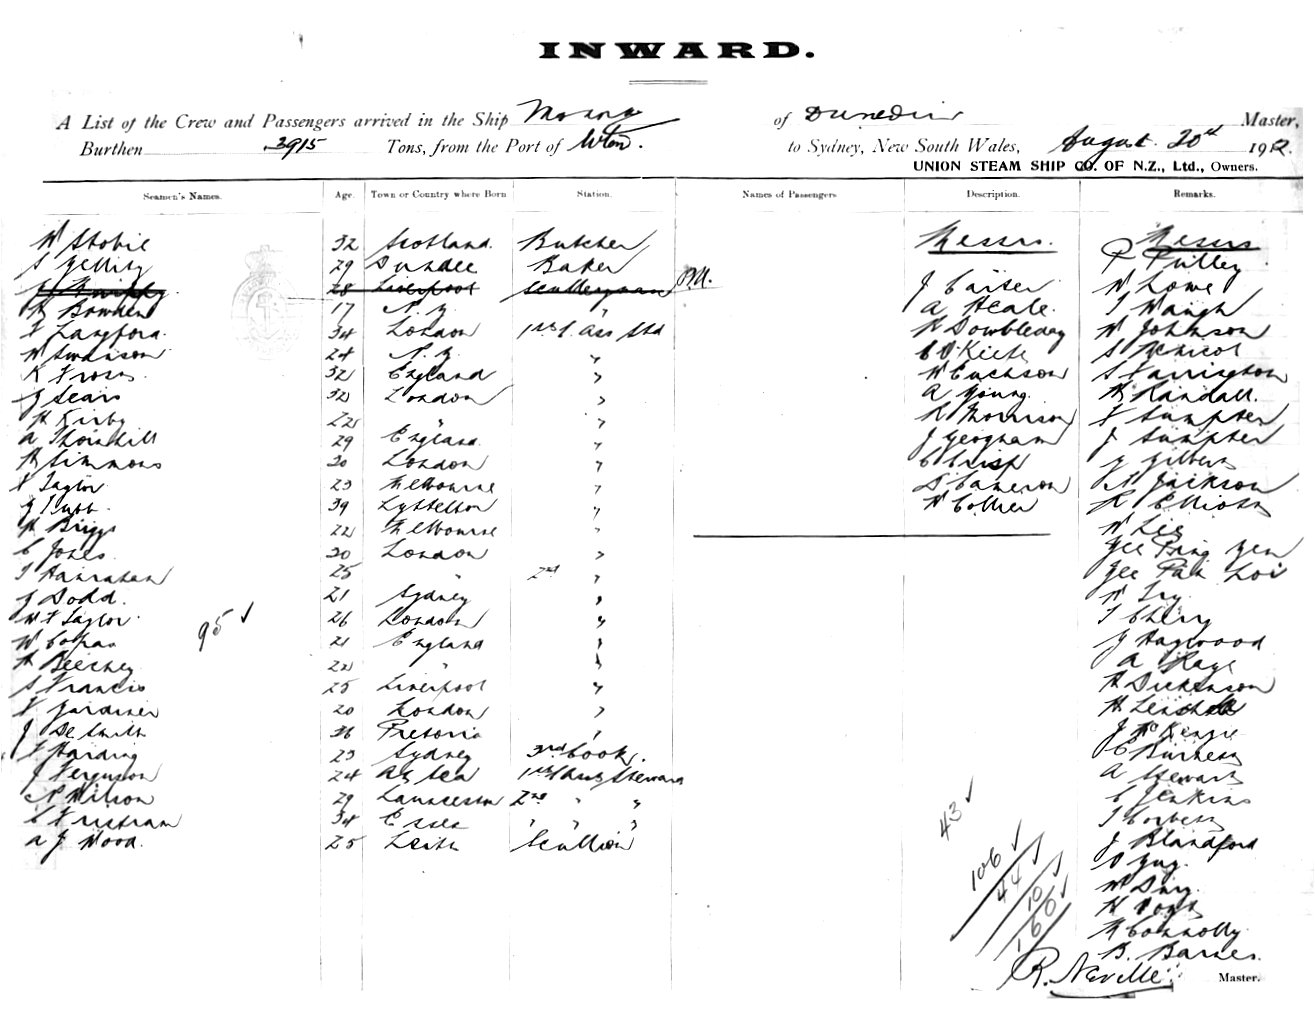 INWARD.
A List of the Crew and Passengers arrived in the Ship of Dunedin Master,
Burthen 3915 Tons, from the Port of Wton. to Sydney, New South Wales, August 20th 1912.
UNION STEAM SHIP CO. OF N.Z., Ltd., Owners.
Seamen's Names. Age. Town or Country where Born Station. Names of Passengers Description. Remarks.
W Stobie 32 Scotland. Butcher
29 Dundee Baker
28 Liverpool Sculleryman
H Bowden 17 N.Z. "
F Langford. 34 London 1st Class Std
W Swanson 24 N.Z. "
32 England "
J Sears 32 London "
H Kirby 22 " "
A Thornhill 29 England "
H Simmons 20 London "
F Taylor 23 Melbourne "
39 Lyttelton "
H Briggs 22 Melbourne "
C Jones 20 London "
T Hanrahan 25 " 2nd "
J Dodd. 21 Sydney "
W F Taylor 26 London "
W 21 England "
H Beechey 22 " "
S Francis 25 Liverpool "
F Gardiner 20 London "
J De Smith 36 Pretoria "
F Harding 23 Sydney 3rd Cook.
J Ferguson 24 At Sea 1st Steward
Wilson 29 Launceston 2nd " "
C Tristram 34 Essex " " "
A J Wood. 25 Leith Scullion
95 ✓
Messrs.
J Carter
A Heale
H Dowbleday
C O'Kiefe
W
A Young.
R Morrison
J Geoghan
C Crisp
D Cameron
W Collier
Messrs
P Pulley
W Lowe
T Waugh
W Johnson
S McNicol
S Farrington
H Randall.
F Sumpter
J Sumpter
G Gilbert
Jackson
R Elliott
W Lee
Gee Ping Yen
Gee Pak Loi
W Ivy
T Cherry
J Haywood
A Kaye
H Dickenson
H
J McKenzie
C Burnett
A Stewart
C Jenkins
T Corbett
J Blandford
O Guy.
W
H
M Connolly.
B. Barnes.
43 ✓
106 ✓
44 ✓
10 ✓
160 ✓
R. Neville. Master.